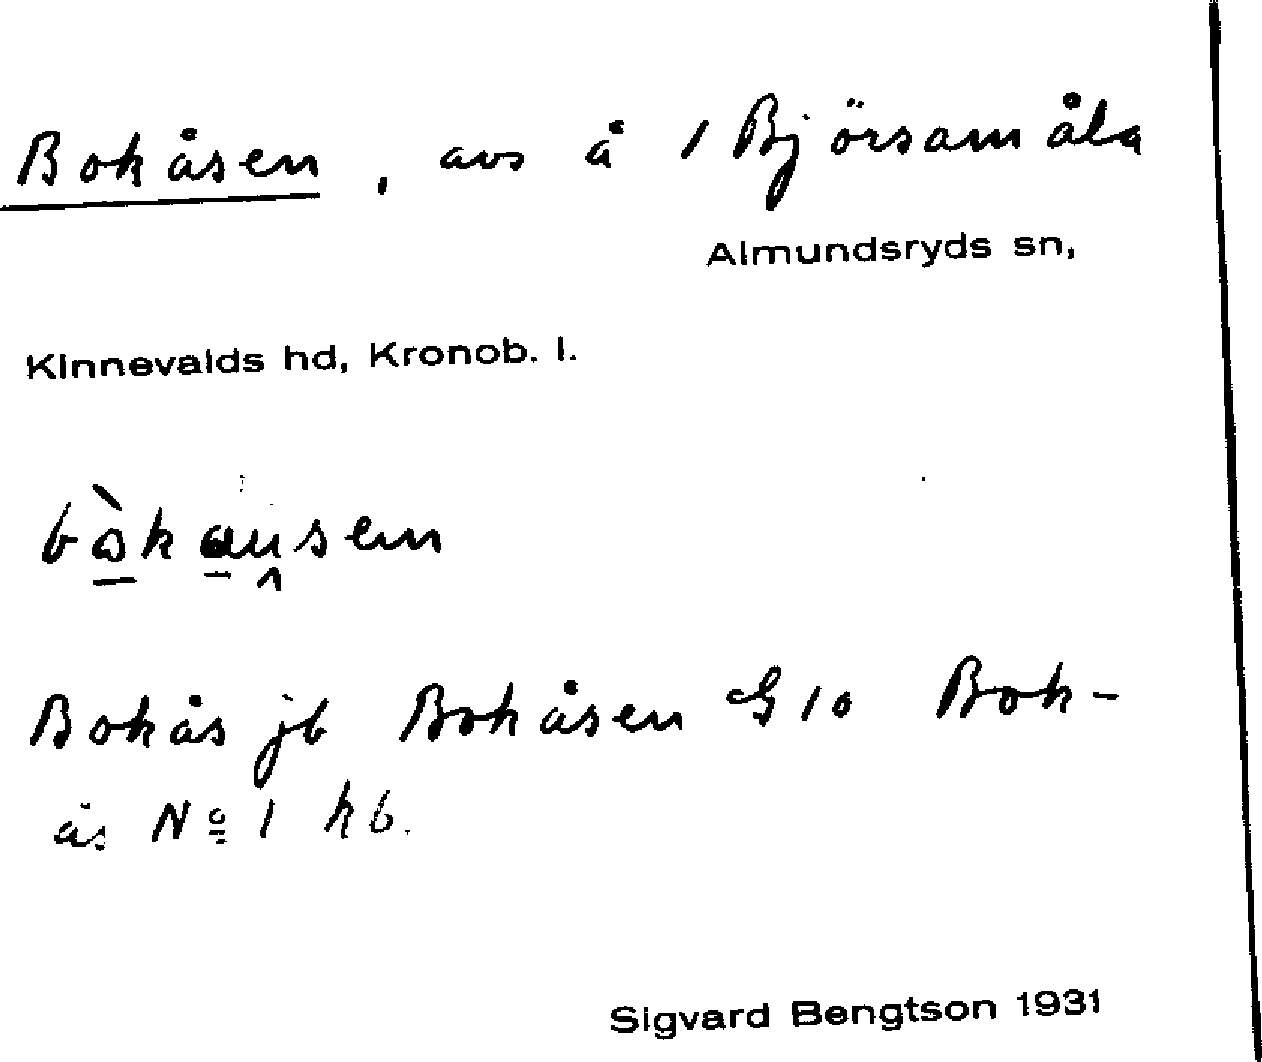 Bokåsen, avs å 1 Björsamåla
Almundsryds sn,
Kinnevalds hd, Kronob. l.
bòkau̯sen
Bokås jb Bokåsen G 10 Bok-
ås No 1 hb.
Sigvard Bengtson 1931